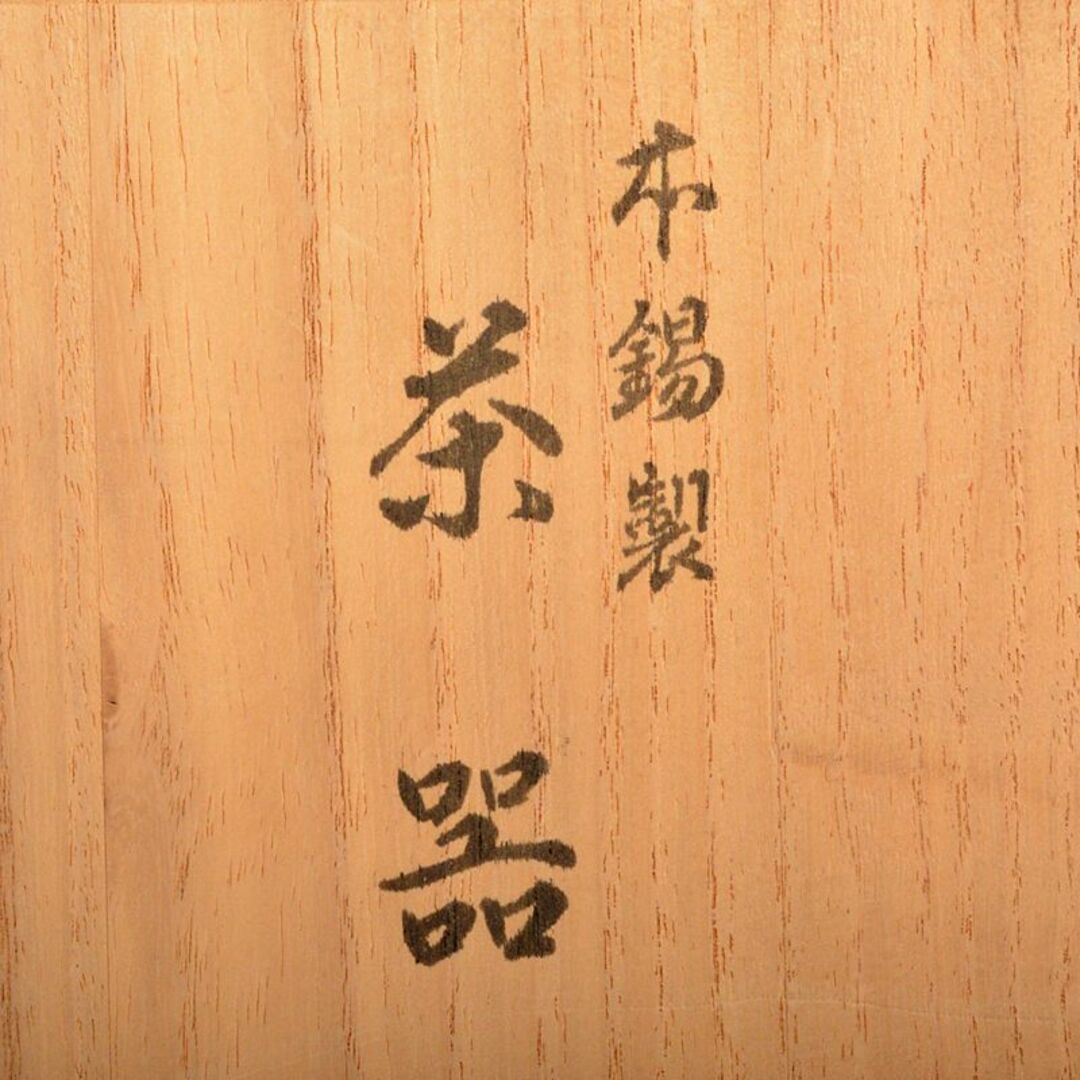 本錫製
茶器